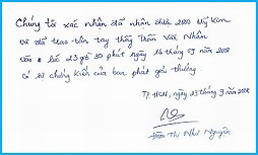 Chúng tôi xác nhận đã nhận 2000 Mỹ Kim
Và đã trao tận tay thầy Trần Việt Nhân
vào 23 giờ 30 phút ngày 16 tháng 03 năm 2008
Có sự chứng kiến của ban phát giải thưởng.
TP. HCM, ngày 23 tháng 3 năm 2008
Trần Thị Như Nguyện